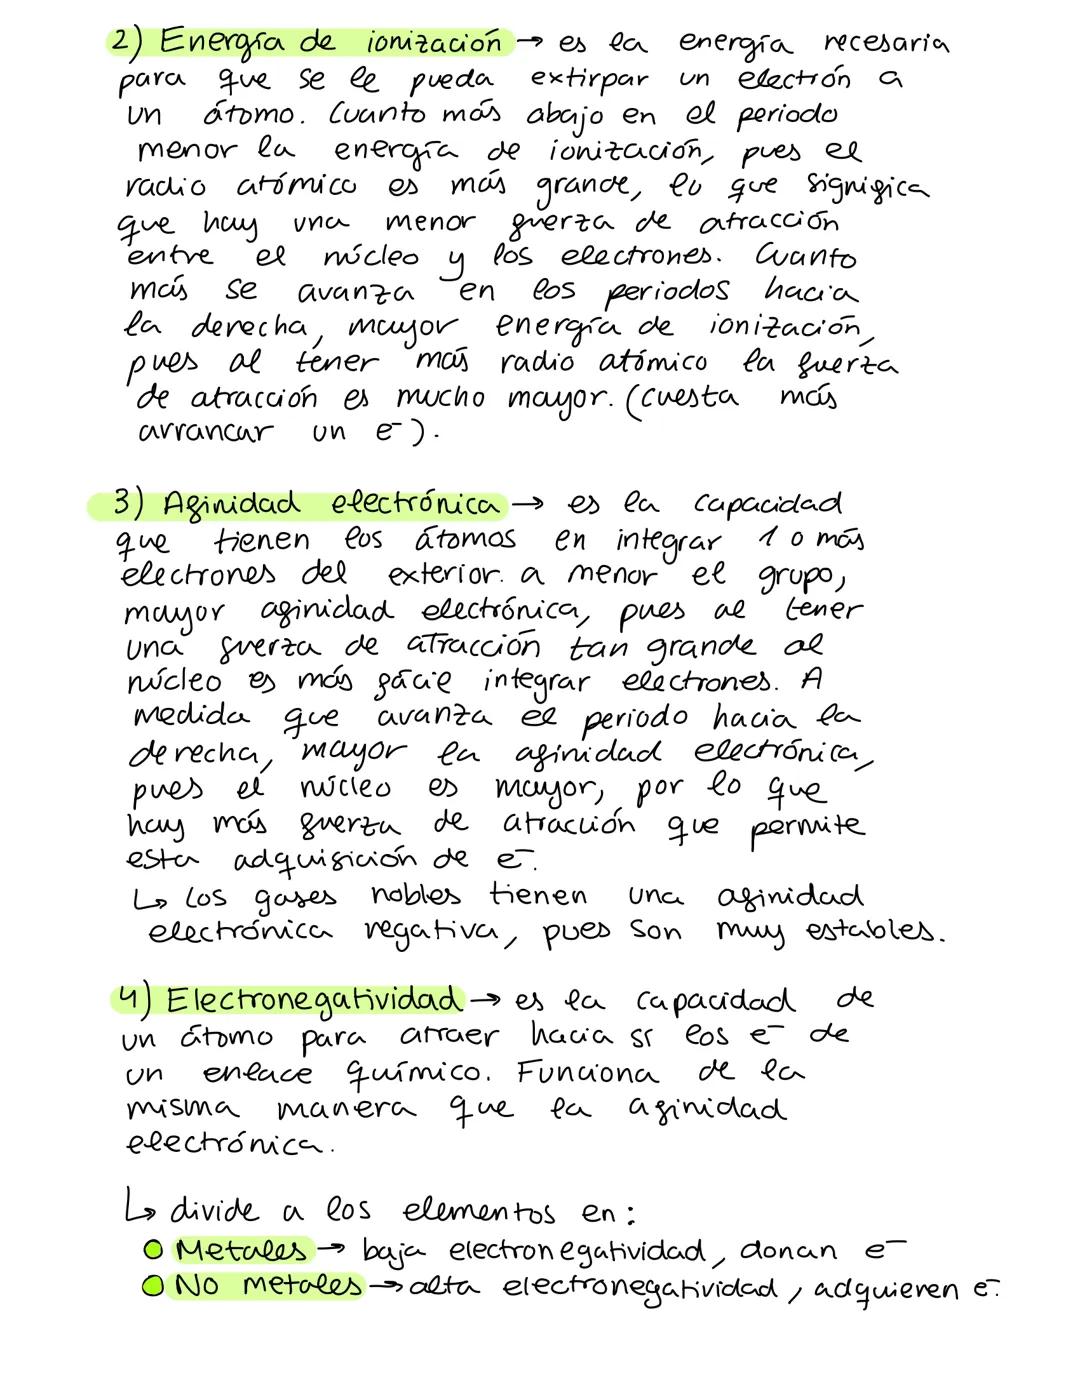 2) Energía de ionización → es la energía necesaria
para que se le pueda extirpar un electrón a
un átomo. Cuanto más abajo en el periodo
menor la energía de ionización, pues el
radio atómico es más grande, lo que significa
que hay una menor fuerza de atracción
entre el núcleo y los electrones. Cuanto
más se avanza en los periodos hacia
la derecha, mayor energía de ionización,
pues al tener más radio atómico la fuerza
de atracción es mucho mayor. (cuesta más
arrancar un e⁻).
3) Afinidad electrónica → es la capacidad
que tienen los átomos en integrar 1 o más
electrones del exterior. a menor el grupo,
mayor afinidad electrónica, pues al tener
una fuerza de atracción tan grande al
núcleo es más fácil integrar electrones. A
medida que avanza el periodo hacia la
derecha, mayor la afinidad electrónica,
pues el núcleo es mayor, por lo que
hay más fuerza de atracción que permite
esta adquisición de e⁻.
↳ Los gases nobles tienen una afinidad
electrónica negativa, pues son muy estables.
4) Electronegatividad → es la capacidad de
un átomo para atraer hacia sí los e⁻ de
un enlace químico. Funciona de la
misma manera que la afinidad
electrónica.
↳ divide a los elementos en:
Metales → baja electronegatividad, donan e⁻
No metales → alta electronegatividad, adquieren e⁻.